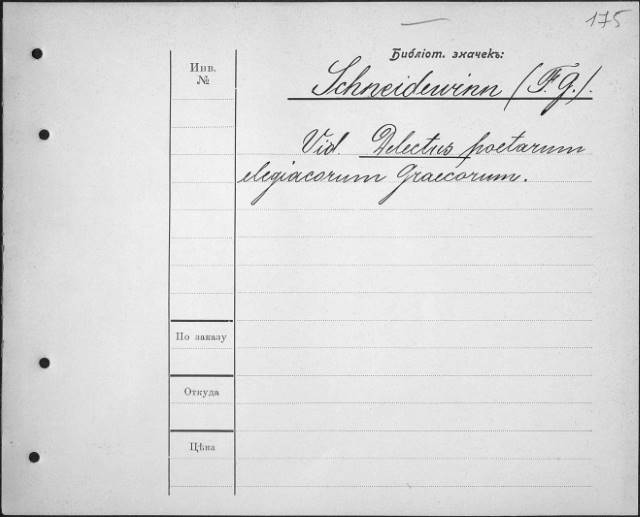 175
Библіот. значекъ:
Инв.
№
Schneidewinn (F. G.).
Vid. Delectus poetarum
elegiacorum Graecorum.
По заказу
Откуда
Цѣна